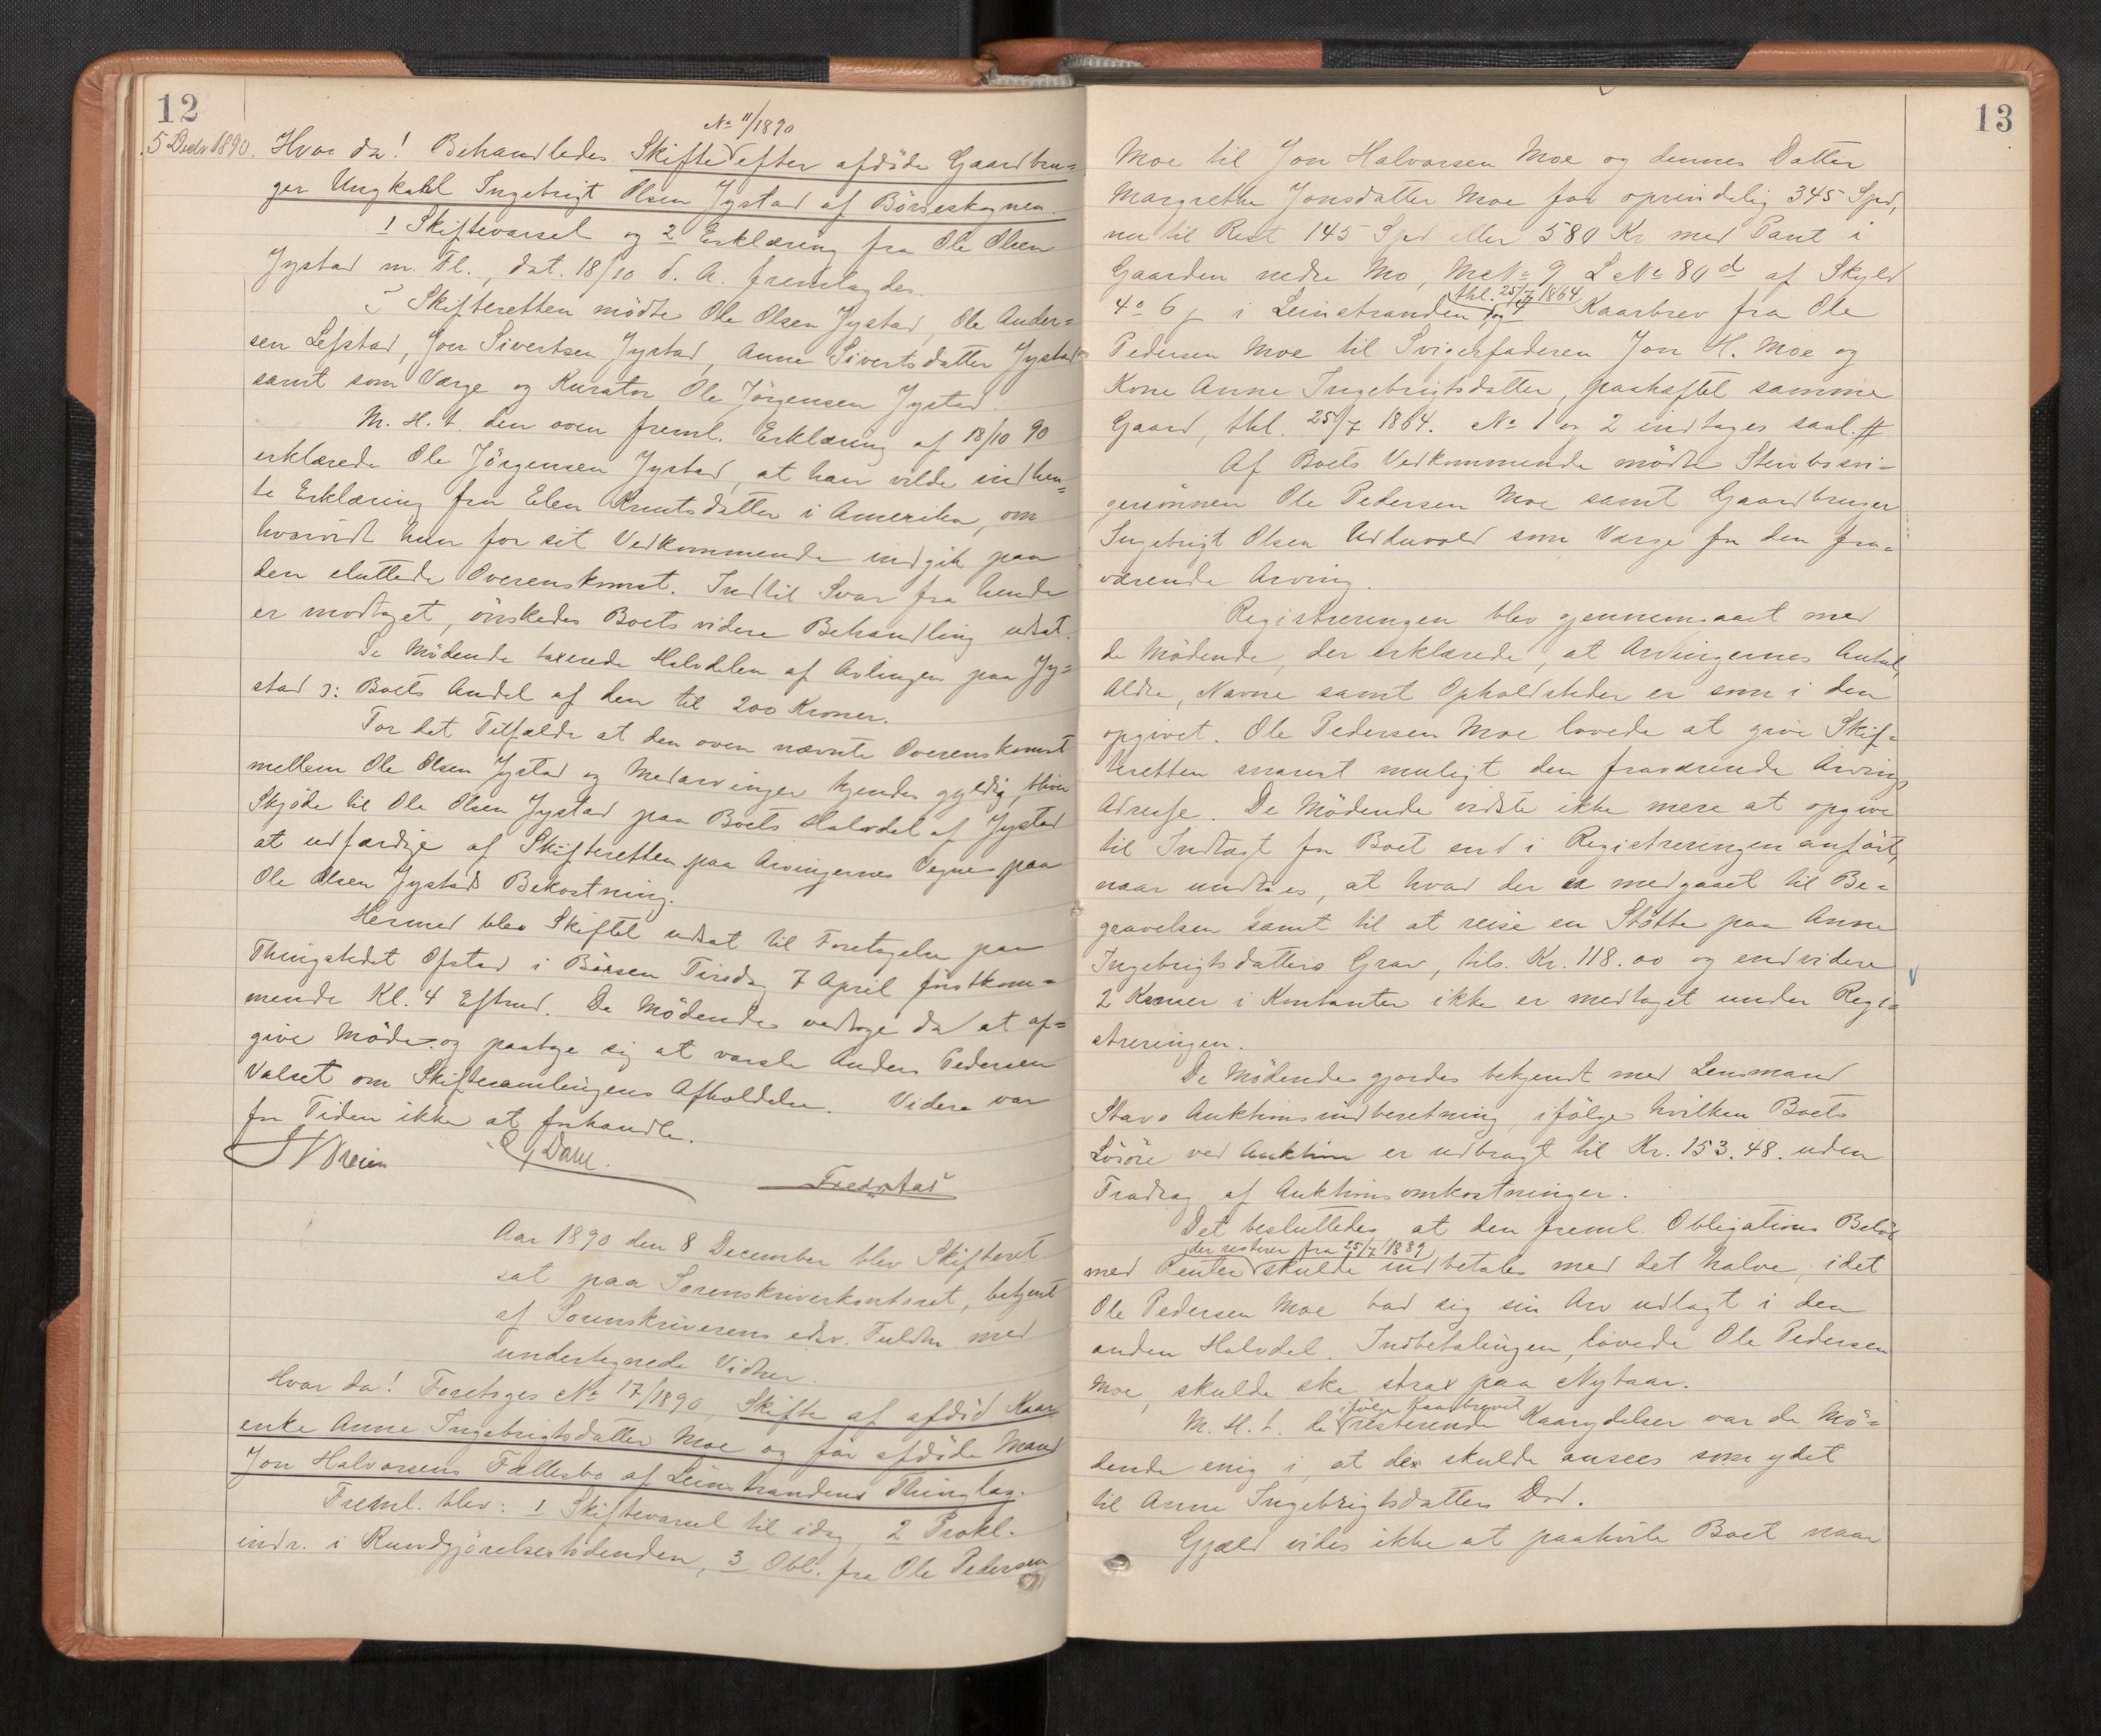 12
No 11/1890
5 Decbr 1890. Hvor da! Behandledes Skifte efter afdöde Gaardbru=
ger Ungkarl Ingebrigt Olsen Jystad af Börseskognen.
1 Skiftevarsel og 2 Erklæring fra Ole Olsen
Jystad m. Fl., dat. 18/10 d. A. fremlagdes.
I Skifteretten mödte Ole Olsen Jystad, Ole Ander=
sen Lefstad, Jon Sivertsen Jystad, Anne Sivertsdatter Jystad
samt som Værge og Kurator Ole Jörgensen Jystad.
M. H. t. den oven freml. Erklæring af 18/10 90
erklærede Ole Jörgensen Jystad, at han vilde indhen=
te Erklæring fra Elen Knutsdatter i Amerika, om
hvorvidt hun for sit Vedkommende indgik paa
den sluttede Overenskomst. Indtil Svar fra hende
er modtaget, önskedes Boets videre Behandling udsat.
De Mödende taxerede Halvdelen af Avlingen paa Jy=
stad ɔ: Boets Andel af den til 200 Kroner.
For det Tilfælde at den oven nævnte Overenskomst
mellem Ole Olsen Jystad og Medarvinger kjendes gyldig, bliver
Skjöde til Ole Olsen Jystad paa Boets Halvdel af Jystad
at udfærdige af Skifteretten paa Arvingernes Vegne paa
Ole Olsen Jystads Bekostning.
Hermed blev Skiftet udsat til Foretagelse paa
Thingstedet Ofstad i Börsen Tirsdag 7 April förstkom=
mende Kl. 4 Eftmd. De Mödende vedtoge da at af=
give Möde og paatoge sig at varsle Anders Pedersen
Valset om Skiftesamlingens Afholdelse. Videre var
for Tiden ikke at forhandle.
Dahl.
Aar 1890 den 8 December blev Skifteret
sat paa Sorenskriverkontoret, betjent
af Sorenskriverens edsv. Fuldm. med
undertegnede Vidner.
Hvor da! Foretoges No 17/1890, Skifte af afdöd Kaar
enke Anne Ingebrigtsdatter Moe og för afdöde Mand
Jon Halvorsens Fællesbo af Leinstrandens Thinglag.
Freml. blev: 1 Skiftevarsel til idag, 2 Prokl.
indr. i Kundgjörelsestidenden, 3 Obl. fra Ole Pedersen
13
Moe til Jon Halvorsen Moe og dennes Datter
Margrethe Jonsdatter Moe for oprindelig 345 Spd,
nu til Rest 145 Spd eller 580 Kr med Pant i
Gaarden nedre Mo, MNo 9 LNo 80d af Skyld
thl. 25/7 1864
4o 6 i Leinstranden, og 4 Kaarbrev fra Ole
Pedersen Moe til Svigerfaderen Jon H. Moe og
Kone Anne Ingebrigtsdatter, paaheftet samme
Gaard, thl. 25/7 1864. No 1 og 2 indtages saal. #
Af Boets Vedkommende mödte Stervbosvi=
gersönnen Ole Pedersen Moe samt Gaardbruger
Ingebrigt Olsen Udduvold som Værge for den fra=
værende Arving.
Registreringen blev gjennemgaaet med
de Mödende, der erklærede, at Arvingernes Antal,
Aldre, Navne samt Opholdsteder er som i den
opgivet. Ole Pedersen Moe lovede at give Skif=
teretten snarest muligt den fraværende Arvings
Adresse. De Mödende vidste ikke mere at opgive
til Indtægt for Boet end i Registreringen anfört,
naar undtages, at hvad der er medgaaet til Be=
gravelsen samt til at reise en Stötte paa Anne
Ingebrigtsdatters Grav, tils. Kr. 118.00 og endvidere
2 Kroner i Kontanter ikke er medtaget under Regi=
streringen.
De Mödende gjordes bekjendt med Lensmand
Stavs Auktionsindberetning, ifölge hvilken Boets
Lösöre ved Auktion er udbragt til Kr. 153.48. uden
Fradrag af Auktionsomkostninger.
Det besluttedes at den freml. Obligations Belöb
der resterer fra 25/7 1889
med Renter skulde indbetales med det halve, idet
Ole Pedersen Moe bad sig sin Arv udlagt i den
anden Halvdel. Indbetalingen, lovede Ole Pedersen
Moe, skulde ske strax paa Nytaar.
ifölge Kaarbrevet
M. H. t. de resterende Kaarydelser var de Mö=
dende enig i, at de skulde ansees som ydet
til Anne Ingebrigtsdatters Död.
Gjæld vides ikke at paahvile Boet naar